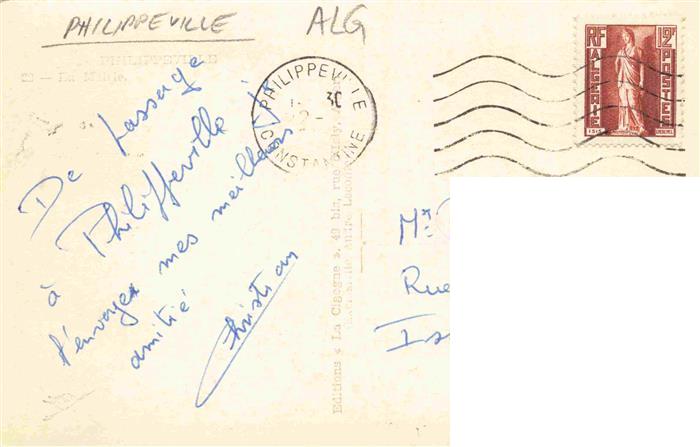 PHILIPPEVILLE
ALG
PHILIPPEVILLE
La Mairie.
PHILIPPEVILLE
CONSTANTINE
RF
12F
ALGERIE
POSTES
De passage
à Philippeville je
t'envoye mes meilleurs
amitié
Christian
Editions « La Cigogne », 49 bis, rue
Mr
Rue